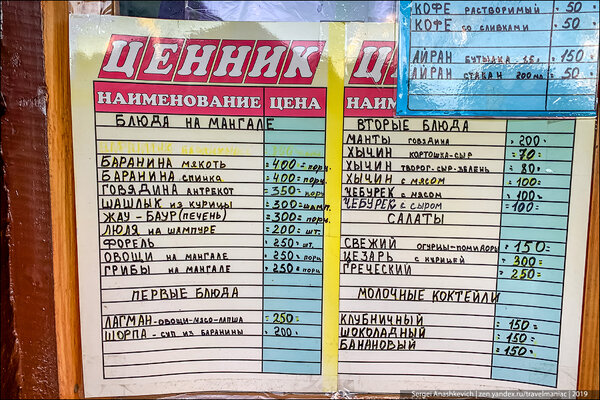 ЦЕННИК
НАИМЕНОВАНИЕ ЦЕНА
БЛЮДА НА МАНГАЛЕ
БАРАНИНА МЯКОТЬ =400= порц.
БАРАНИНА СПИНКА =400= порц.
ГОВЯДИНА АНТРЕКОТ =350= порц
ШАШЛЫК ИЗ КУРИЦЫ =300= шамп.
ЖАУ-БАУР(ПЕЧЕНЬ) =300= порц.
ЛЮЛЯ НА ШАМПУРЕ =200= шт.
ФОРЕЛЬ =250= шт.
ОВОЩИ НА МАНГАЛЕ =250= порц
ГРИБЫ НА МАНГАЛЕ =250= порц
ПЕРВЫЕ БЛЮДА
ЛАГМАН-ОВОЩИ-МЯСО-ЛАПША =250=
ШОРПА-СУП ИЗ БАРАНИНЫ =200=
Ц
НАИМ
ВТОРЫЕ БЛЮДА
МАНТЫ ГОВЯДИНА =200=
ХЫЧИН КОРТОШКА-СЫР =70=
ХЫЧИН ТВОРОГ-СЫР-ЗЕЛЕНЬ =80=
ХЫЧИН С МЯСОМ =100=
ЧЕБУРЕК С МЯСОМ =100=
ЧЕБУРЕК С СЫРОМ =100=
САЛАТЫ
СВЕЖИЙ ОГУРЦЫ-ПОМИДОРЫ =150=
ЦЕЗАРЬ С КУРИЦЕЙ =300=
ГРЕЧЕСКИЙ =250=
МОЛОЧНЫЕ КОКТЕЙЛИ
КЛУБНИЧНЫЙ =150=
ШОКОЛАДНЫЙ =150=
БАНАНОВЫЙ =150=
КОФЕ РАСТВОРИМЫЙ =50=
КОФЕ СО СЛИВКАМИ =50=
АЙРАН БУТЫЛКА 1.5 Л =150=
АЙРАН СТАКАН 200 МЛ =50=
Sergei Anashkevich | zen.yandex.ru/travelmaniac | 2019